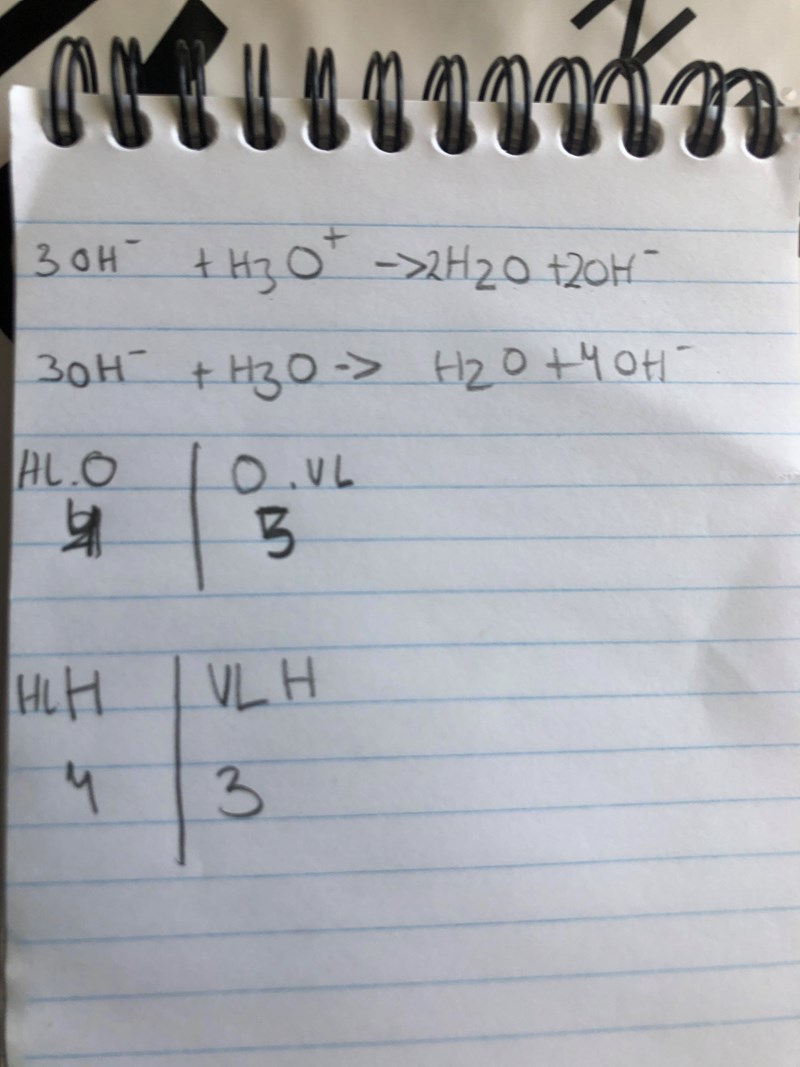 3OH⁻ + H3O⁺ -> 2H2O + 2OH⁻
3OH⁻ + H3O -> H2O + 4OH⁻
HL.O | O.VL
4 | 5
HL H | VL H
4 | 3